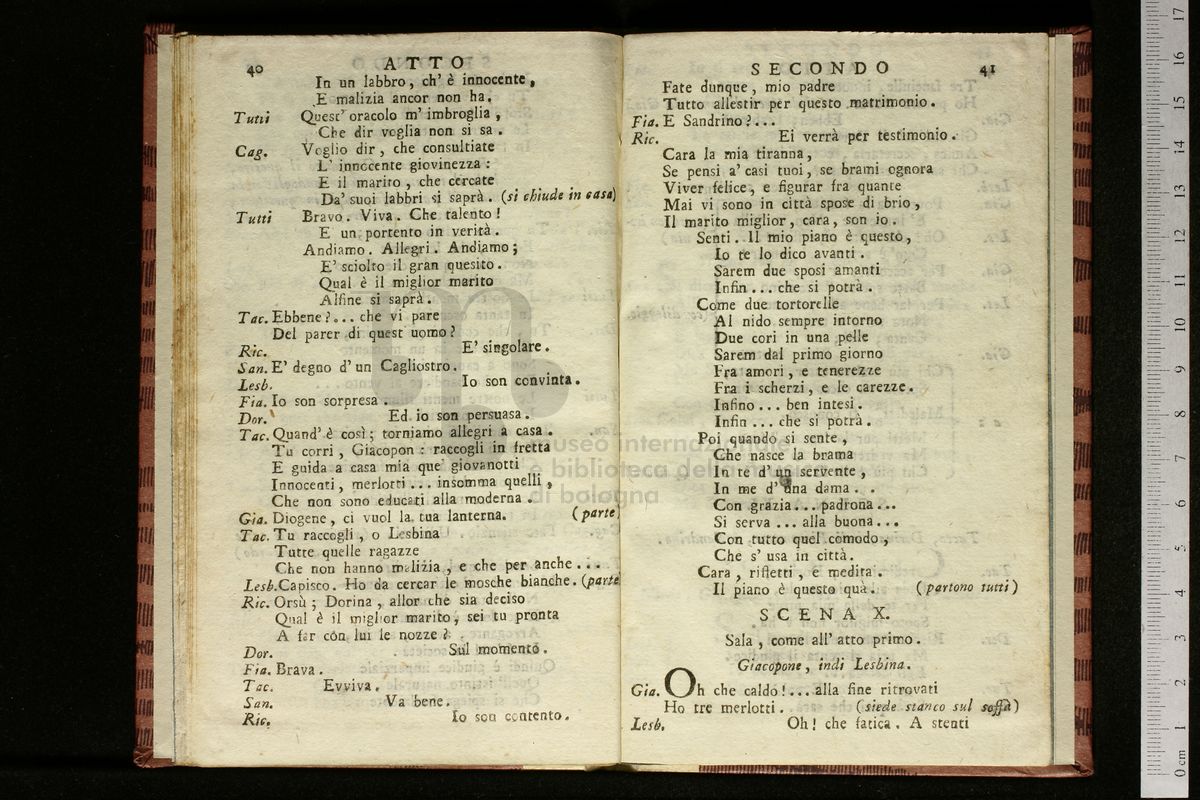 40
ATTO
In un labbro, ch' è innocente,
E malizia ancor non ha.
Tutti Quest' oracolo m' imbroglia,
Che dir voglia non si sa.
Cag. Voglio dir, che consultiate
L' innocente giovinezza:
E il marito, che cercate
Da' suoi labbri si saprà. (si chiude in casa)
Tutti Bravo. Viva. Che talento!
E un portento in verità.
Andiamo. Allegri. Andiamo;
E' sciolto il gran quesito.
Qual è il miglior marito
Alfine si saprà.
Tac. Ebbene?... che vi pare
Del parer di quest uomo?
Ric. E' singolare.
San. E' degno d' un Cagliostro.
Lesb. Io son convinta.
Fia. Io son sorpresa.
Dor. Ed io son persuasa.
Tac. Quand' è così; torniamo allegri a casa.
Tu corri, Giacopon: raccogli in fretta
E guida a casa mia que' giovanotti
Innocenti, merlotti... insomma quelli,
Che non sono educati alla moderna.
Gia. Diogene, ci vuol la tua lanterna. (parte
Tac. Tu raccogli, o Lesbina
Tutte quelle ragazze
Che non hanno malizia, e che per anche...
Lesb. Capisco. Ho da cercar le mosche bianche. (parte
Ric. Orsù; Dorina, allor che sia deciso
Qual è il miglior marito, sei tu pronta
A far con lui le nozze?
Dor. Sul momento.
Fia. Brava.
Tac. Evviva.
San. Va bene.
Ric. Io son contento.
SECONDO
41
Fate dunque, mio padre
Tutto allestir per questo matrimonio.
Fia. E Sandrino?...
Ric. Ei verrà per testimonio.
Cara la mia tiranna,
Se pensi a' casi tuoi, se brami ognora
Viver felice, e figurar fra quante
Mai vi sono in città spose di brio,
Il marito miglior, cara, son io.
Senti. Il mio piano è questo,
Io te lo dico avanti.
Sarem due sposi amanti
Infin... che si potrà.
Come due tortorelle
Al nido sempre intorno
Due cori in una pelle
Sarem dal primo giorno
Fra amori, e tenerezze
Fra i scherzi, e le carezze.
Infino... ben intesi.
Infin... che si potrà.
Poi quando si sente,
Che nasce la brama
In te d' un servente,
In me d' una dama..
Con grazia... padrona...
Si serva... alla buona...
Con tutto quel comodo,
Che s' usa in città.
Cara, rifletti, e medita.
Il piano è questo quà. (partono tutti)
SCENA X.
Sala, come all' atto primo.
Giacopone, indi Lesbina.
Gia. Oh che caldo!... alla fine ritrovati
Ho tre merlotti. (siede stanco sul soffà)
Lesb. Oh! che fatica. A stenti
museo internazionale
e biblioteca della musica
di bologna
0 cm 1 2 3 4 5 6 7 8 9 10 11 12 13 14 15 16 17